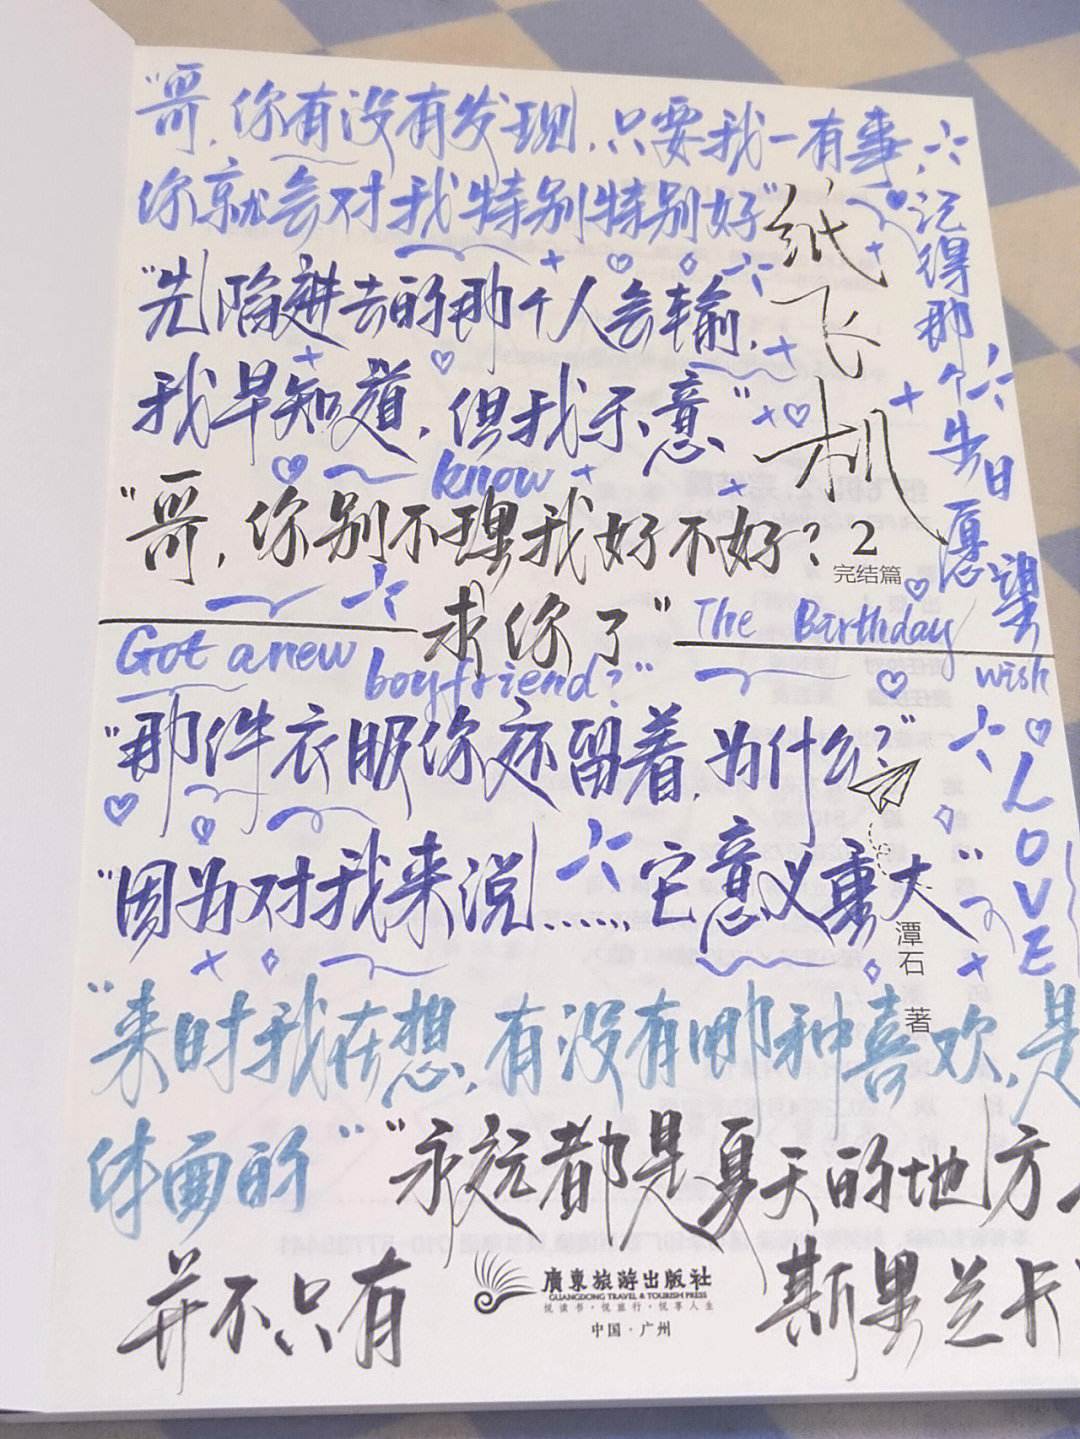 “哥,你有没有发现,只要我一有事,
你就会对我特别特别好”
纸飞机
“先陷进去的那个人会输,
我早知道,但我乐意”
know
“哥,你别不理我好不好?
求你了”
2
完结篇
记得那个生日愿望
The Birthday wish
LOVE
Got a new boyfriend?”
“那件衣服你还留着,为什么?”
“因为对我来说……它意义重大”
潭石 著
“来时我在想,有没有哪种喜欢,是
体面的”
“永远都是夏天的地方
并不只有
斯里兰卡
廣東旅游出版社
GUANGDONG TRAVEL & TOURISM PRESS
悦读书·悦旅行·悦享人生
中国·广州